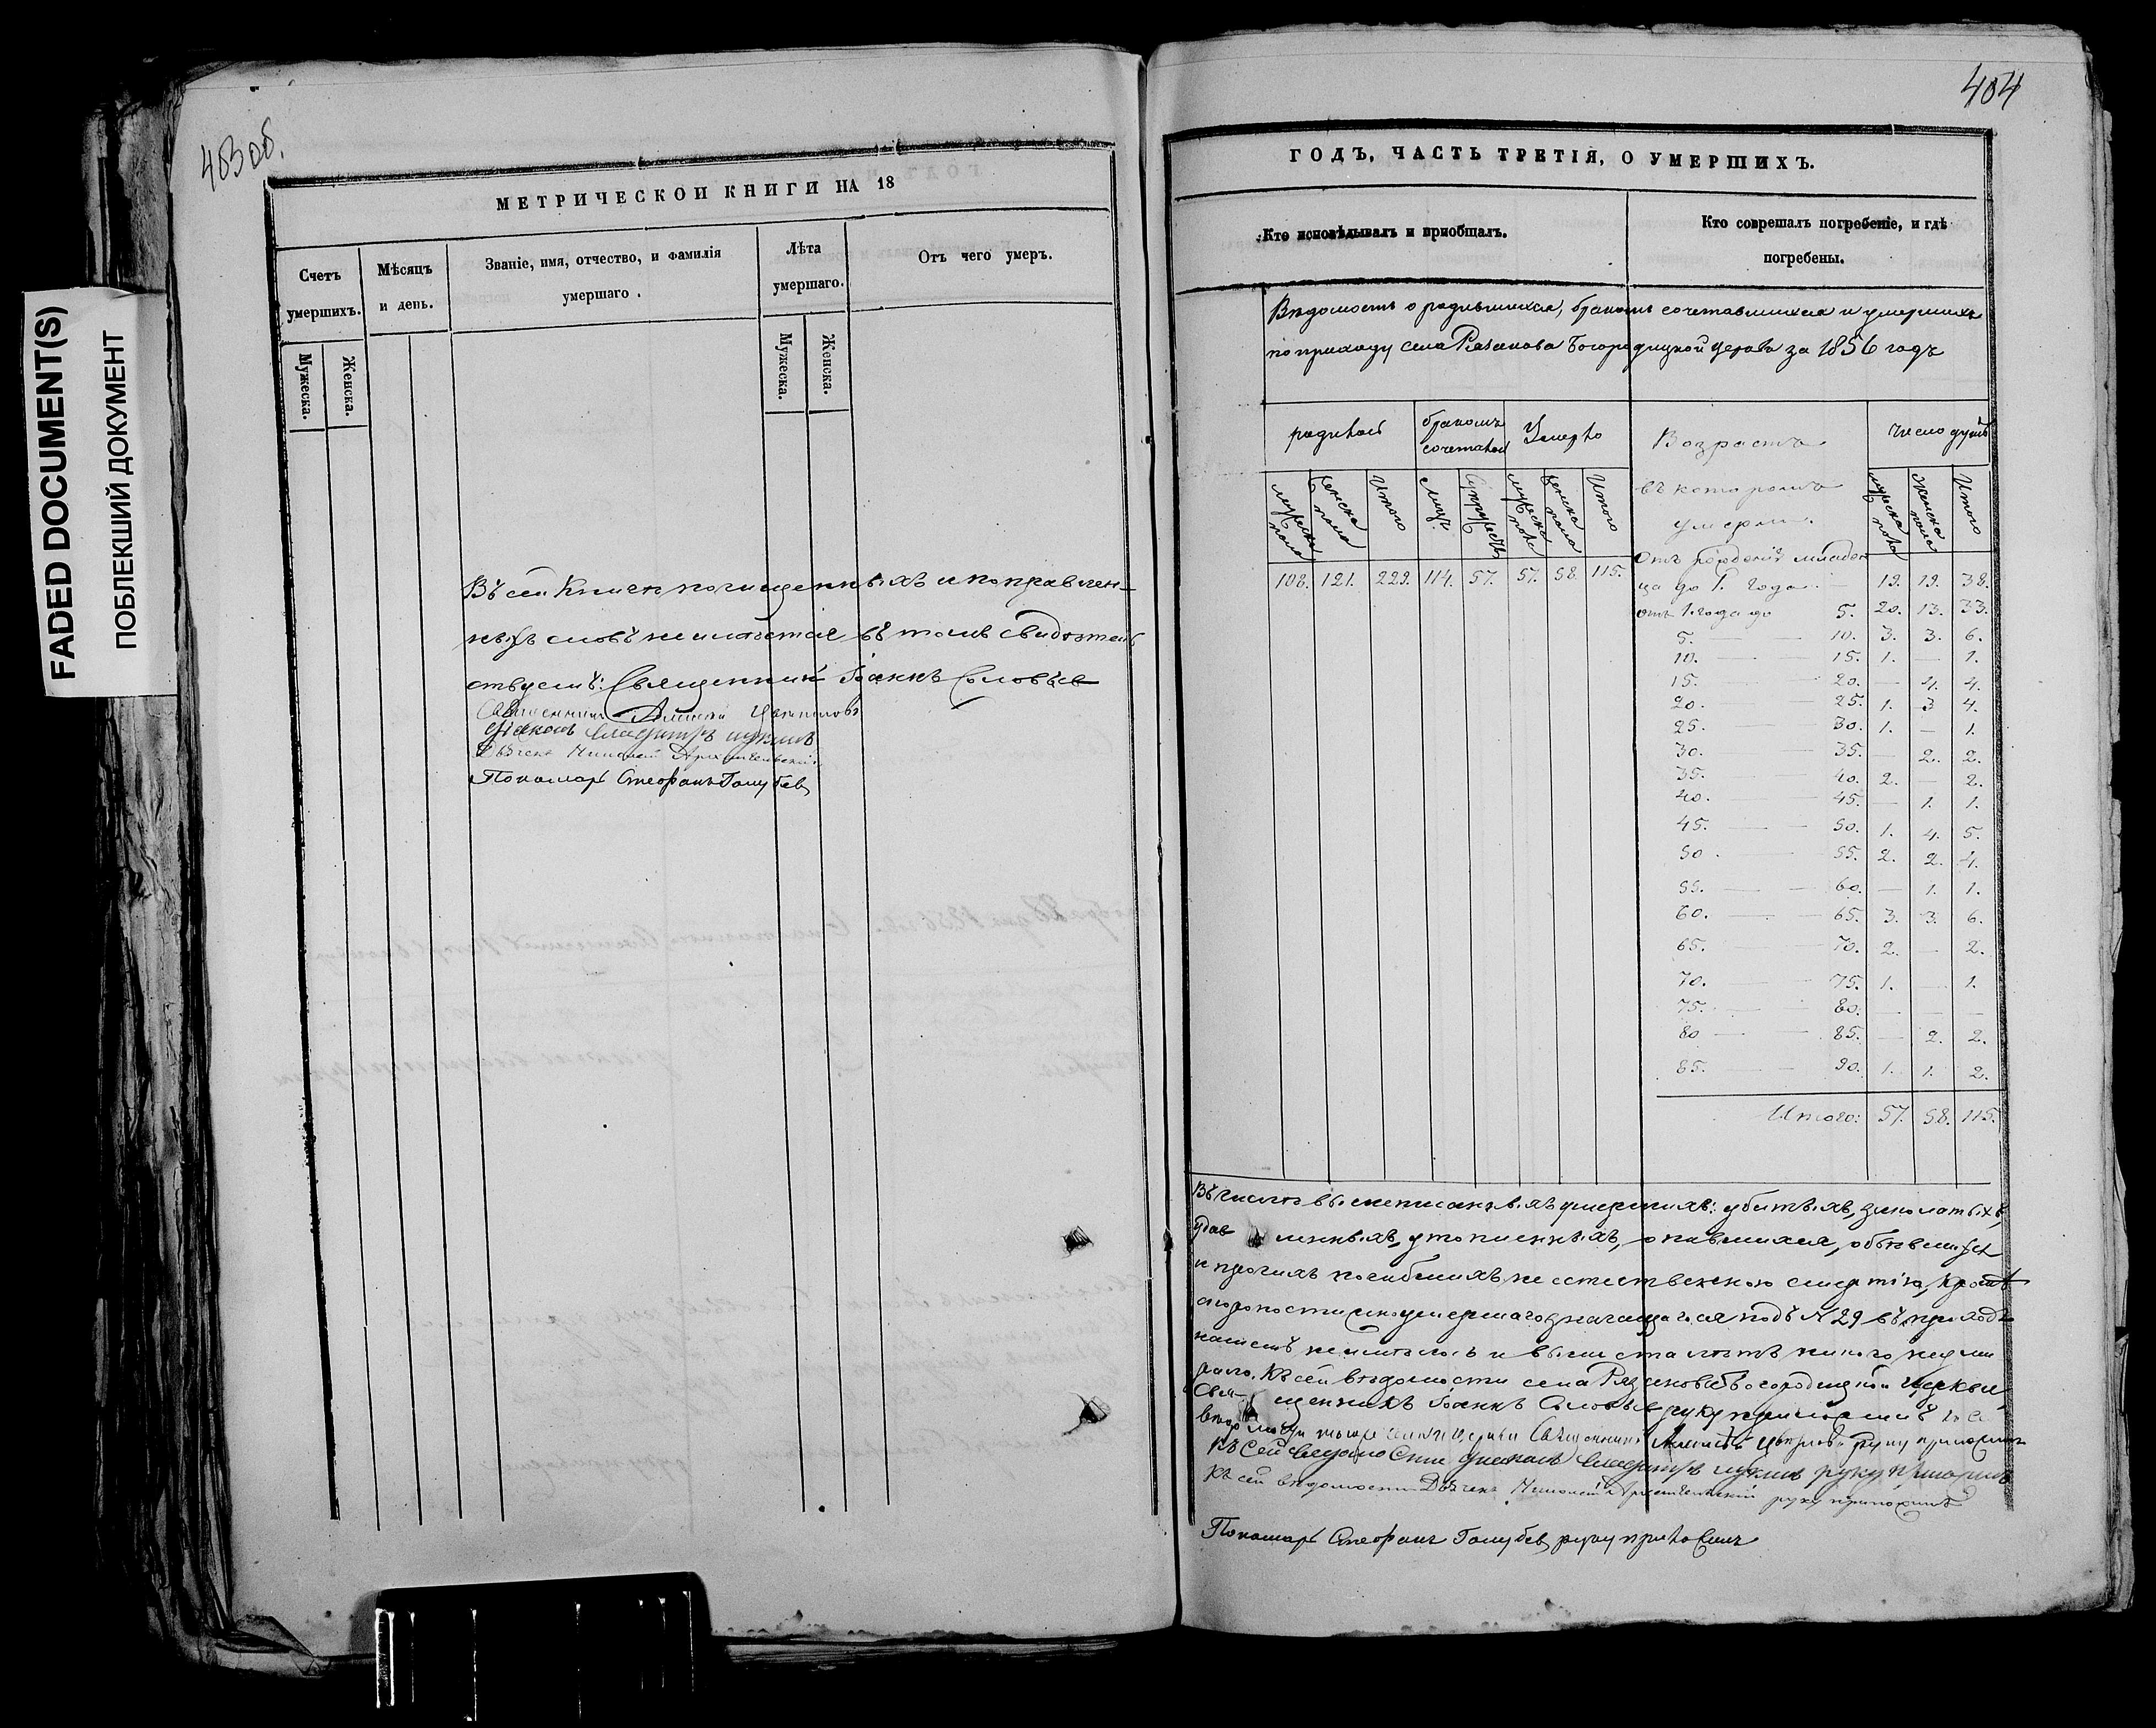 403 об.
404
FADED DOCUMENT(S)
ПОБЛЕКШИЙ ДОКУМЕНТ
МЕТРИЧЕСКОЙ КНИГИ НА 18
Счетъ умершихъ.
Мѣсяцъ и день.
Званіе, имя, отчество, и фамилія умершаго.
Лѣта умершаго.
Отъ чего умеръ.
Мужеска.
Женска.
Мужеска.
Женска.
Въ сей книгѣ почищенныхъ и поправлен-
ныхъ словъ не имѣется въ томъ свидѣтель
ствуемъ: Священникъ Іоаннъ Соловьев
Священникъ Алексѣй
Діаконъ Владиміръ
Дьячекъ Николай Архангельскій
Пономарь Стефанъ Голубев
ГОДЪ, ЧАСТЬ ТРЕТІЯ, О УМЕРШИХЪ.
Кто исповѣдывалъ и пріобщалъ.
Кто соврешалъ погребеніе, и гдѣ
погребены.
Вѣдомость о родившихся, бракомъ сочетавшихся и умершихъ
по приходу села Рязанова Богородицкой церкви за 1856 годъ
родилось
бракомъ сочеталось
Умерло
Возрастъ
въ которомъ
умерли.
число душъ
мужеска пола
женска пола
Итого
Лицъ
Супружествъ
мужеска пола
женска пола
Итого
мужеска пола
женска пола
Итого
108. 121. 229. 114. 57. 57. 58. 115.
Отъ рожденія младен
ца до 1. года — 19. 19. 38.
отъ 1. года до 5. 20. 13. 33.
5. — 10. 3. 3. 6.
10. — 15. 1. — 1.
15. — 20. — 4. 4.
20. — 25. 1. 3 4.
25. — 30. 1. — 1.
30. — 35. — 2. 2.
35. — 40. 2. — 2.
40. — 45. — 1. 1.
45. — 50. 1. 4. 5.
50. — 55. 2. 2. 4.
55. — 60. — 1. 1.
60. — 65. 3. 3. 6.
65. — 70. 2. — 2.
70. — 75. 1. — 1.
75. — 80. — — —
80 — 85. — 2. 2.
85. — 90. 1. 1. 2.
Итого: 57. 58. 115.
Въ числѣ вышеписанныхъ умершихъ: убитыхъ,
удав ленныхъ, утопленныхъ, опившихся,
и прочихъ погибшихъ не естественною смертію, кромѣ
скоропостижно умершаго значащагося подъ N 29 въ приходѣ
нашемъ не имѣлось и выше ста лѣтъ никого не уми
рало. Къ сей вѣдомости села Рязанова Богородицкой церкви
Свя- щенникъ Іоаннъ Соловьев руку приложилъ
Священникъ Алексѣй руку приложилъ
Къ сей вѣдомости діаконъ Владиміръ руку приложилъ
Къ сей вѣдомости Дьячекъ Николай Архангельскій руку приложилъ
Пономарь Стефанъ Голубев руку приложилъ